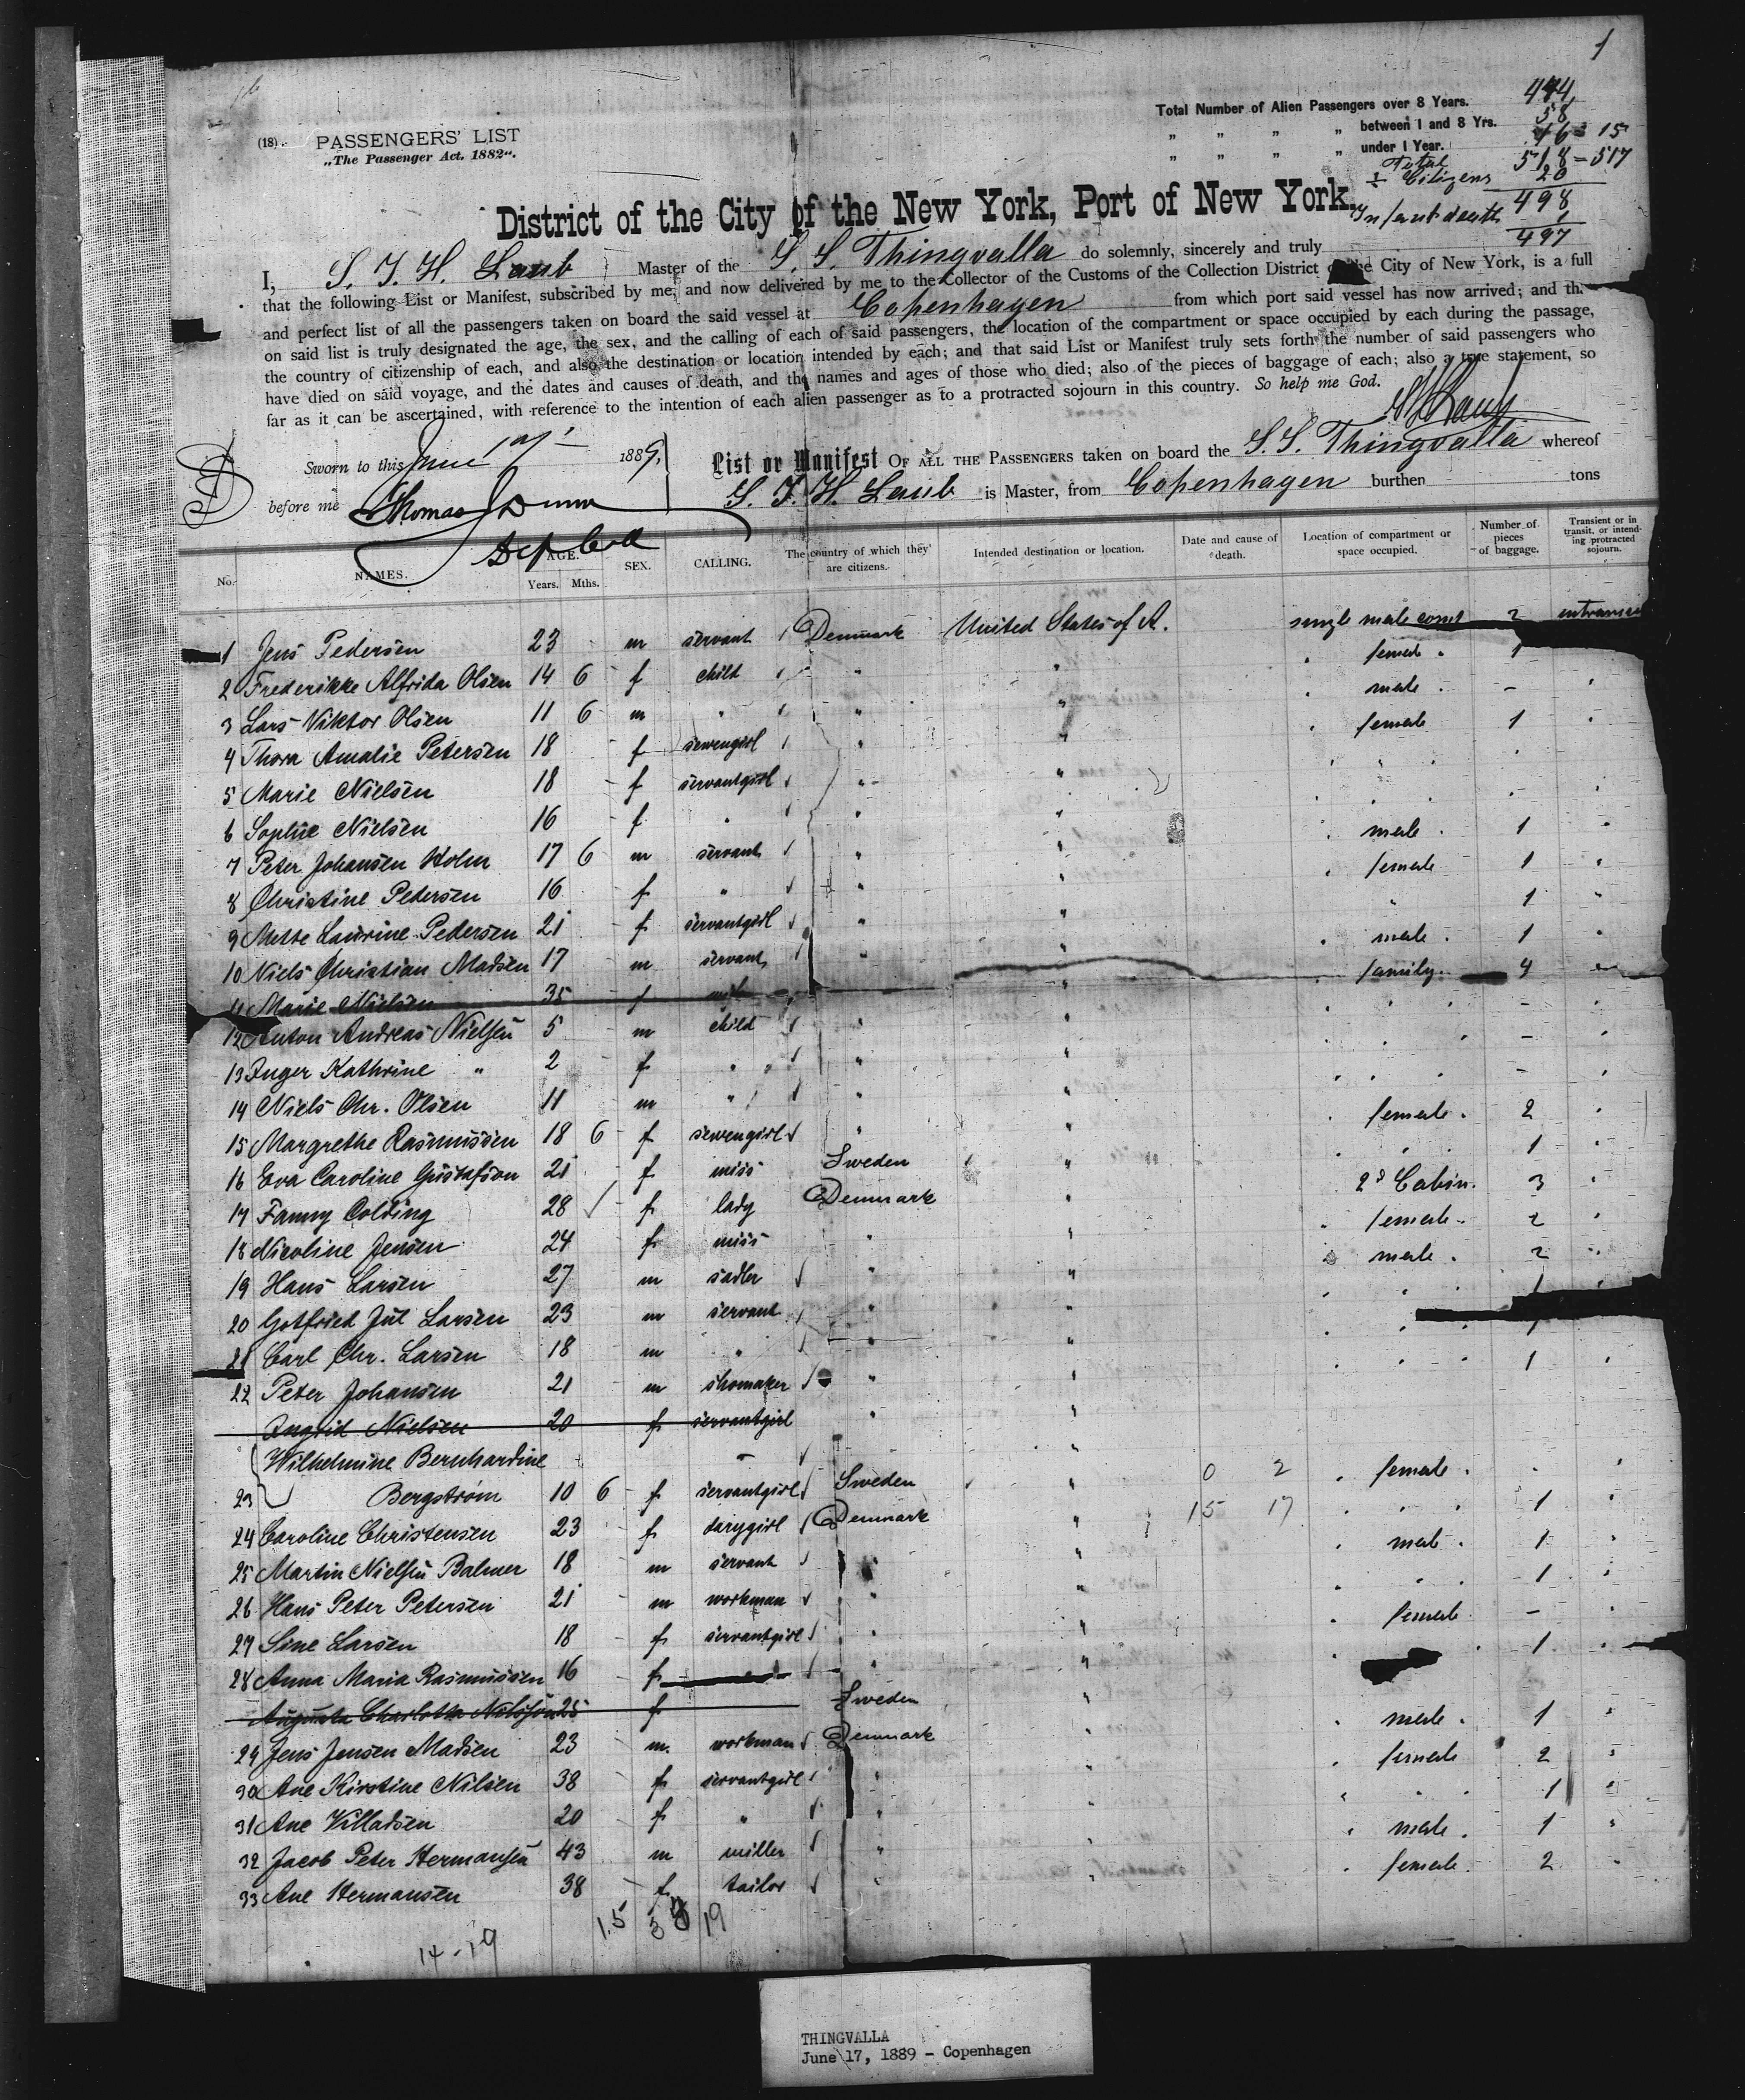 1
(18). PASSENGERS' LIST
„The Passenger Act. 1882".
Total Number of Alien Passengers over 8 Years. 444
„ „ „ „ between 1 and 8 Yrs. 58
„ „ „ „ under 1 Year. 16 = 15
Total 518 = 517
÷ Citizens 20
498
Infant death 1
497
District of the City of the New York, Port of New York.
I, S. T. H. Laub Master of the S. S. Thingvalla do solemnly, sincerely and truly
that the following List or Manifest, subscribed by me, and now delivered by me to the Collector of the Customs of the Collection District the City of New York, is a full
and perfect list of all the passengers taken on board the said vessel at Copenhagen from which port said vessel has now arrived; and th
on said list is truly designated the age, the sex, and the calling of each of said passengers, the location of the compartment or space occupied by each during the passage,
the country of citizenship of each, and also the destination or location intended by each; and that said List or Manifest truly sets forth the number of said passengers who
have died on said voyage, and the dates and causes of death, and the names and ages of those who died; also of the pieces of baggage of each; also a true statement, so
far as it can be ascertained, with reference to the intention of each alien passenger as to a protracted sojourn in this country. So help me God.
Sworn to this June 17 1889,
before me Thomas J Dunn
Dep Coll
List or Manifest OF ALL THE PASSENGERS taken on board the S. S. Thingvalla whereof
S. T. H. Laub is Master, from Copenhagen burthen tons
No. NAMES. AGE. Years. Mths. SEX. CALLING. The country of which they are citizens. Intended destination or location. Date and cause of death. Location of compartment or space occupied. Number of pieces of baggage. Transient or in transit, or intending protracted sojourn.
1 Jens Pedersen 23 m servant Denmark United States of A. single male comt 2
2 Frederikke Alfrida Olsen 14 6 f child " " " female " 1
3 Lars Viktor Olsen 11 6 m " " " " male " - "
4 Thora Amalie Petersen 18 f sewengirl " " " female 1 "
5 Marie Nielsen 18 f servantgirl " " " " " "
6 Sophie Nielsen 16 f " " " " " " - "
7 Peter Johansen Holm 17 6 m servant " " " male " 1 "
8 Christine Petersen 16 f " " " " female 1 "
9 Mette Laurine Pedersen 21 f servantgirl " " " 1 "
10 Niels Christian Madsen 17 m servant " " " male " 1 "
11 Marie Nielsen 35 f " " family 4 "
12 Anton Andreas Nielsen 5 m child " " " " " - "
13 Inger Kathrine " 2 f " " " " " " - "
14 Niels Chr. Olsen 11 m " " " " " " - "
15 Margrethe Rasmussen 18 6 f sewengirl " " " female " 2 "
16 Eva Caroline Gustafson 21 f miss Sweden " " " " 1 "
17 Fanny Colding 28 f lady Denmark " 2d Cabin. 3 "
18 Nicoline Jensen 24 f miss " " " female " 2 "
19 Hans Larsen 27 m sadler " " " male " 2 "
20 Gotfried Jul Larsen 23 m servant " " " " " 1 "
21 Carl Chr. Larsen 18 m " " " " " 1
22 Peter Johansen 21 m shomaker " " " " " 1 "
Ingrid Nielsen 20 f servantgirl " "
Wilhelmine Bernhardine
23 Bergstrøm 10 6 f servantgirl Sweden " 0 2 " female " - "
24 Caroline Christensen 23 f darygirl Denmark " 15 17 " " " 1 "
25 Martin Nielsen Balmer 18 m servant " " " male " 1 "
26 Hans Peter Petersen 21 m workman " " " " " 1 "
27 Sine Larsen 18 f servantgirl " " " female - "
28 Anna Maria Rasmussen 16 f " " " 1 "
Augusta Charlotta Nilsson 25 f Sweden "
29 Jens Jensen Madsen 23 m. workman Denmark " " male " 1 "
30 Ane Kirstine Nilsen 38 f servantgirl " " " female 2 "
31 Ane Villadsen 20 f " " " " " " 1 "
32 Jacob Peter Hermansen 43 m miller " " " male " 1 "
33 Ane Hermansen 38 f tailor " " " female " 2 "
14-19
15 3 19
THINGVALLA
June 17, 1889 - Copenhagen